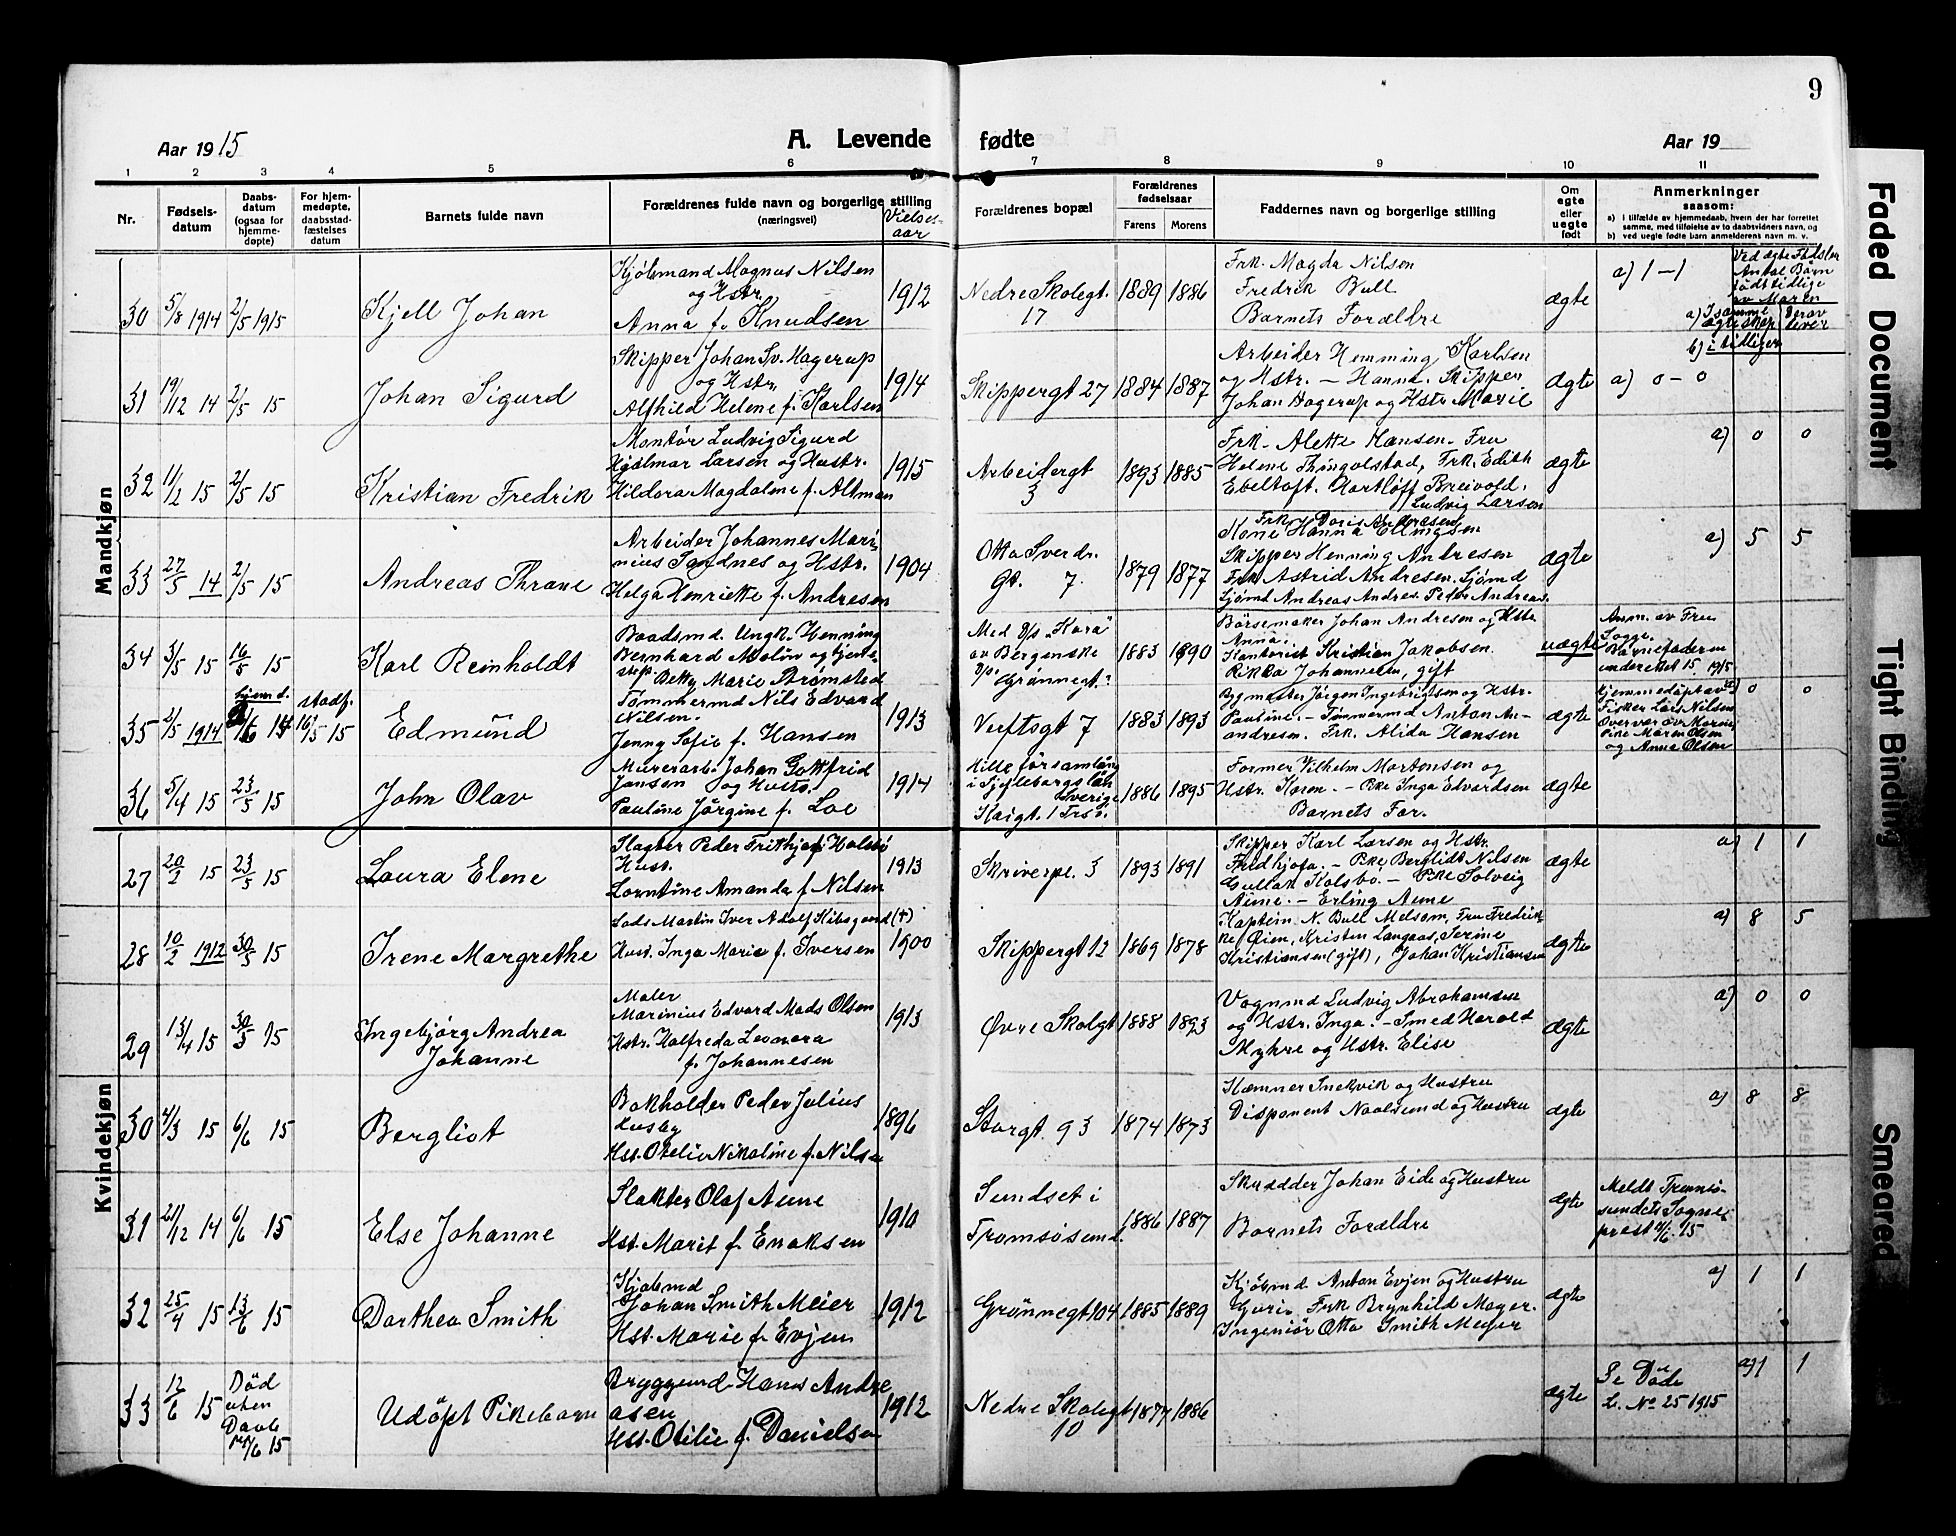 9
Aar 1915
A. Levende
fødte
Aar 19
1 2 3 4 5 6 7 8 9 10 11
Nr.
Fødsels-
datum
Daabs-
datum
(ogsaa for
hjemme-
døpte)
For hjem-
medøpte,
daabsstad-
fæstelses
datum
Barnets fulde navn
Forældrenes fulde navn og borgerlige stilling
(næringsvei)
Vielses-
aar
Forældrenes bopæl
Forældrenes
fødselsaar
Farens Morens
Faddernes navn og borgerlige stilling
Om
ægte
eller
uegte
født
Anmerkninger
saasom:
a) I tilfælde av hjemmedaab, hvem der har forrettet
samme, med tilføielse av to daabsvidners navn, og
b) ved uegte fødte barn anmelderens navn m. v.
Ved ægte Fødsler
Antal Børn
født tidlige
av Moren
a) I samme
ægteskap
Derav
lever
b) i tidliger
Mandkjøn
30 5/8 1914 2/5 1915
Kjell Johan
Kjølsmand Magnus Nilsen
og Hstr.
Anna f. Knudsen
1912
Nedre Skolegt.
17
1889 1886
Frk. Magda Nilsen
Fredrik Bull
Barnets Forældre
ægte
a) 1 – 1
31 19/12 14 2/5 15
Johan Sigurd
Skipper Johan Sv. Hagerup
og Hstr.
Alfhild Helene f. Karlsen
1914
Skippergt 27
1884 1887
Arbeider Hemming Karlsen
og Hstr. – Hanna. Skipper
Johan Hagerup og Hstr Marie
ægte
a) 0 – 0
32 11/2 15 2/5 15
Kristian Fredrik
Montør Ludvig Sigurd
Hjalmar Larsen og Hustr.
Hildora Magdalene f. Altman
1915
Arbeidergt
3
1893 1885
Frk. Alette Hansen. Fru
Helene Thingolstad, Frk. Edith
Ebeltoft. Hartløff Breivold.
Ludvig Larsen
ægte
a) 0 0
33 27/5 14 2/5 15
Andreas Thrane
Arbeider Johannes Mari-
nius Sandnes og Hstr.
Helga Henriette f. Andresen
1904
Otto Sverdr.
Gt. 7.
1879 1877
Frk. Doris Andresen
Kone Hanna Ellingsen
Skipper Henning Andresen
Frk. Astrid Andresen. Sjømd
Sjømd Andreas Andres. Peder Andreas.
ægte
a) 5 5
34 3/5 15 16/5 15
Karl Reinholdt
Baadsmd. Ungk. Henning
Bernhard Molin og tjenes-
Betty Marie Strømsted
Med D/s "Kora"
av Bergenske
Grønnegt.
1883 1890
Børsemaker Johan Andresen og Hstr.
Anna.
Kontorist Kristian Jakobsen.
Rikka Johannesen, gift
uægte
Anm. av Fru
Barnefaderen
underrettet 15. 1915
35 2/5 1914
hjemd.
stadf.
16/5 15
Edmund
Tømmermd Nils Edvard
Nilsen.
Jenny Sofie f. Hansen
1913
Verftsgt 7
1883 1893
Bygmester Jørgen Ingebrigtsen og Hstr.
Pauline. – Tømmermd Anton An-
andresen. Frk. Alida Hansen
ægte
Hjemmedøpt av
Fisker Lars Nilsen
Overvær avr Maria
Pike Maren Olsen
og Anna Olsen
0 0
36 5/4 15 23/5 15
John Olav
Murerarb. Johan Gottfrid
Jansen og Hustr.
Pauline Jørgine f. Loe
1914
Sverige
1886 1895
Former Vilhelm Mortensen og
Hstr. Karen. – Pike Inga Edvardsen
Barnets For.
ægte
Kvindekjøn
27 20/2 15 23/5 15
Laura Elene
Slagter Peder Frithjof Holsbø
Hust.
Lorntine Amanda f. Nilsen
1913
Skriverpl. 3
1893 1891
Skipper Karl Larsen og Hstr.
Fridhjofa. – Pike Berglidt Nilsen
Gullak Kolsbø. – Pike Solveig
Aune. – Erling Aune
ægte
a) 1 1
28 10/2 1912 30/5 15
Irene Margrethe
Lods Martin Iver Adolf Kibsgaard (†)
Hust. Inga Marie f. Iversen
1900
Skippergt 12
1869 1878
Kaptein N. Bull Melsom, Fru Fredrik-
ke Øien, Kristen Langaas, Serine
Kristiansen (gift), Johan Kristiansen
ægte
a) 8 5
29 13/4 15 30/5 15
Ingebjørg Andrea
Johanne
Maler
Marinius Edvard Mads Olsen
Hstr. Halfreda Leonora
f. Johannesen
1913
Øvre Skolegt
1888 1893
Vognmd Ludvig Abrahamsen
og Hstr. Inga. – Smed Harold
Myhre og Hstr. Elise
ægte
a) 0 0
30 4/3 15 6/6 15
Bergliot
Bokholder Peder Julius
Husby
Hst. Otelie Nikoline f. Nilsen
1896
Storgt. 93
1874 1873
Kæmner Snekvik og Hustru
Disponent Naalsund og Hustru
ægte
a) 8 8
31 21/12 14 6/6 15
Else Johanne
Slakter Olaf Aune
Hst. Marit f. Enoksen
1910
Sundset i
Tromsøsund.
1886 1887
Skrædder Johan Eide og Hustru
Barnets Forældre
ægte
Meldt Tromsø-
sundets Sogne-
prest 11/6. 15
32 25/4 15 13/6 15
Dorthea Smith
Kjøbmd
Johan Smith Meier
Hst. Marie f. Evjen
1912
Grønnegt 104
1885 1889
Kjøbmd Anton Evjen og Hustru
Guri. Frk Brynhild Mayer.
Ingeniør Otto Smith Meyer
ægte
a) 1 1
33 12/6 15
Død
uten
Daab
15
Udøpt Pikebarn
Bryggemd Hans Andre
asen
Hst. Otilie f. Danielsen
1912
Nedre Skolegt
10
1877 1886
ægte
Se Døde
L. No 25 1915
a) 1 1
Faded Document
Tight Binding
Smeared